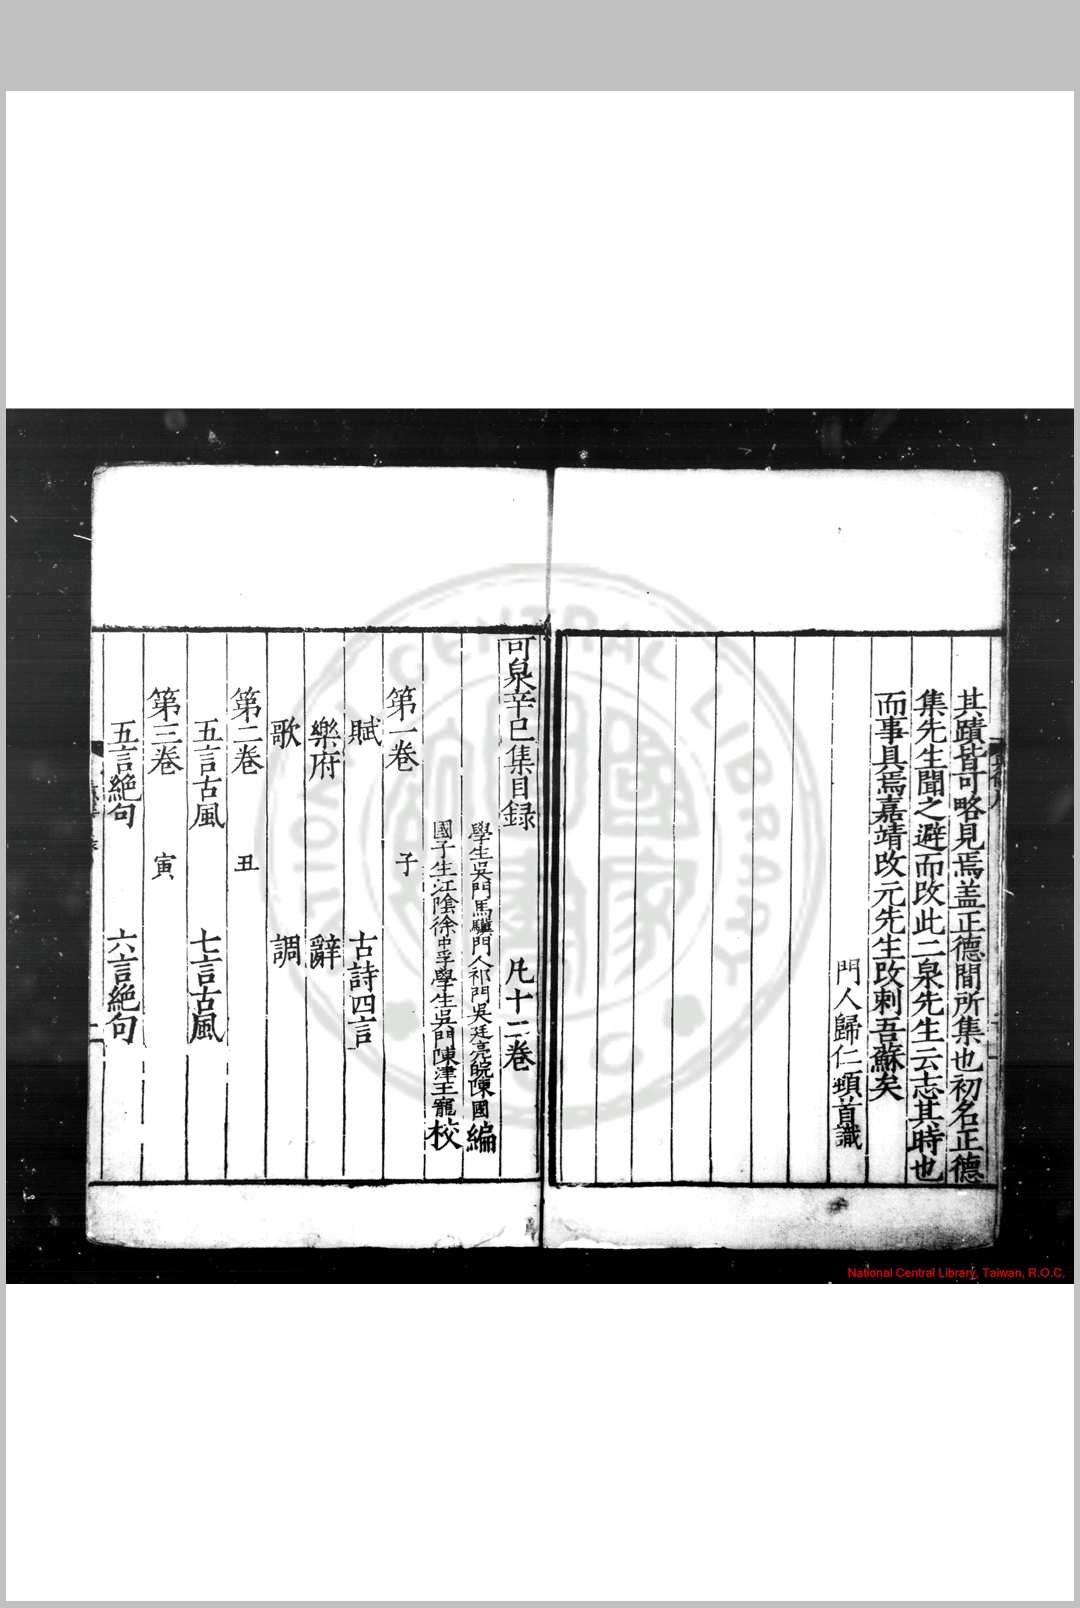 其蹟皆可略見焉盖正德間所集也初名正德
集先生聞之避而改此二泉先生云志其時也
而事具焉嘉靖改元先生改刺吾蘇矣
門人歸仁頓首識
可泉辛巳集目録 凡十二卷
學生吳門馬驥門人祁門吳廷亮皖陳國編
國子生江陰徐中孚學生吳門陳津王寵校
第一卷 子
賦 古詩四言
樂府 辭
歌 調
第二卷 丑
五言古風 七言古風
第三卷 寅
五言絶句 六言絶句
National Central Library, Taiwan, R.O.C.
NATIONAL CENTRAL LIBRARY